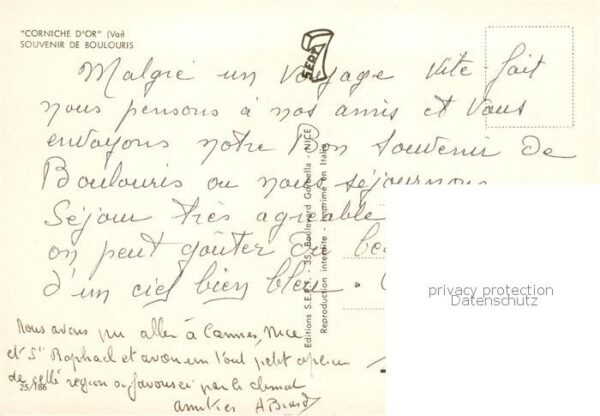 "CORNICHE D'OR" (Var)
SOUVENIR DE BOULOURIS
SEPT
Malgré un voyage vite fait
nous pensons à nos amis et vous
envoyons notre bon souvenir de
Boulouris ou nous séjournons
Séjour très agréable
on peut goûter du be
d'un ciel bien bleu.
Nous avons pu aller à Cannes, Nice
et St Raphael et avons un tout petit aperçu
de cette région si favorisée par le climat
amitiés
25/186
Editions S.E.P.T. - 35, Boulevard Gorbella - NICE
Reproduction interdite - Imprimé en Italie
privacy protection
Datenschutz